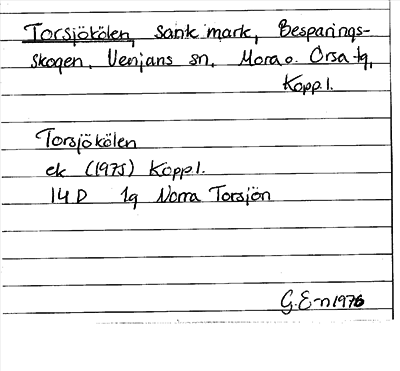 Torsjökölen, sank mark, Besparings-
skogen. Venjans sn, Mora o. Orsa tg,
Kopp.l.
Torsjökölen
ek (1975) Kopp.l.
14 D 1g Norra Torsjön
G.E-n 1976